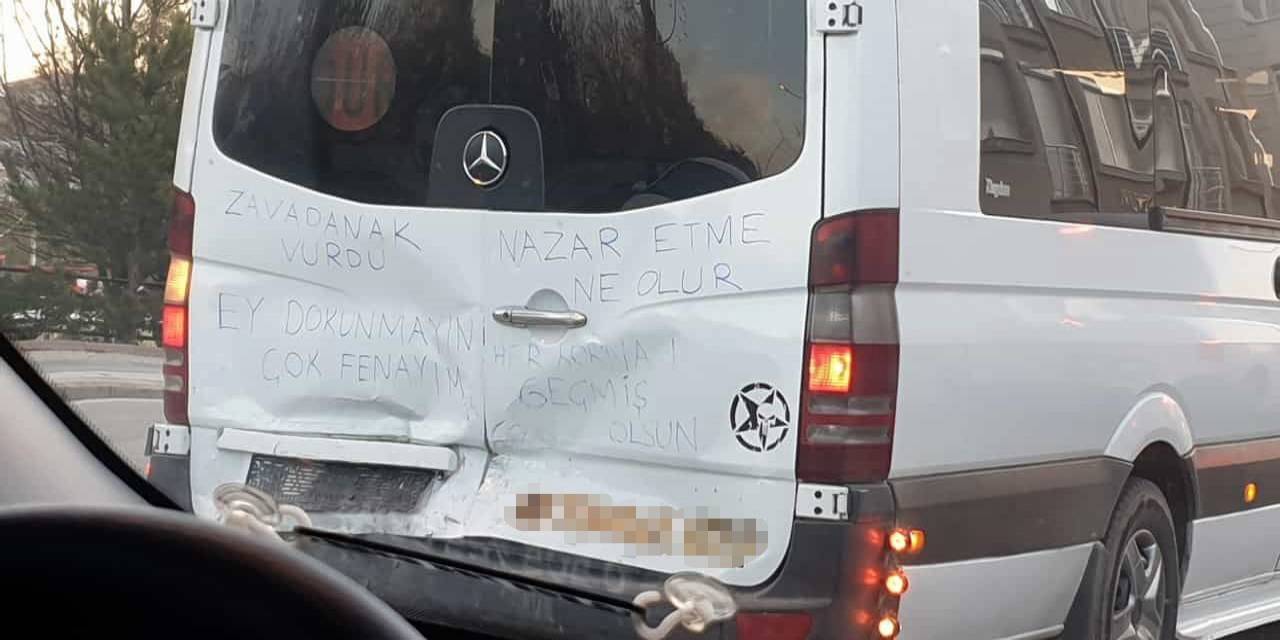 ZAVADANAK
VURDU
EY DOKUNMAYINI
ÇOK FENAYIM
NAZAR ETME
NE OLUR
HER
GEÇMİŞ
OLSUN